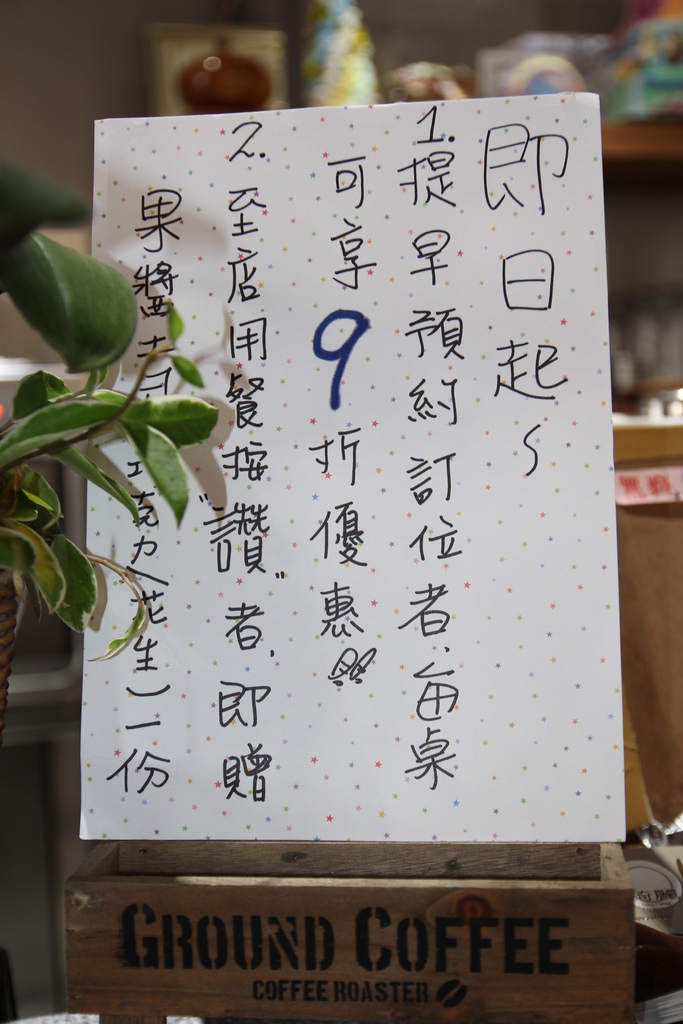 即日起~
1.提早預約訂位者,每桌
可享9折優惠
2.至店用餐按"讚"者,即贈
果醬吐司(巧克力/花生)一份
GROUND COFFEE
COFFEE ROASTER